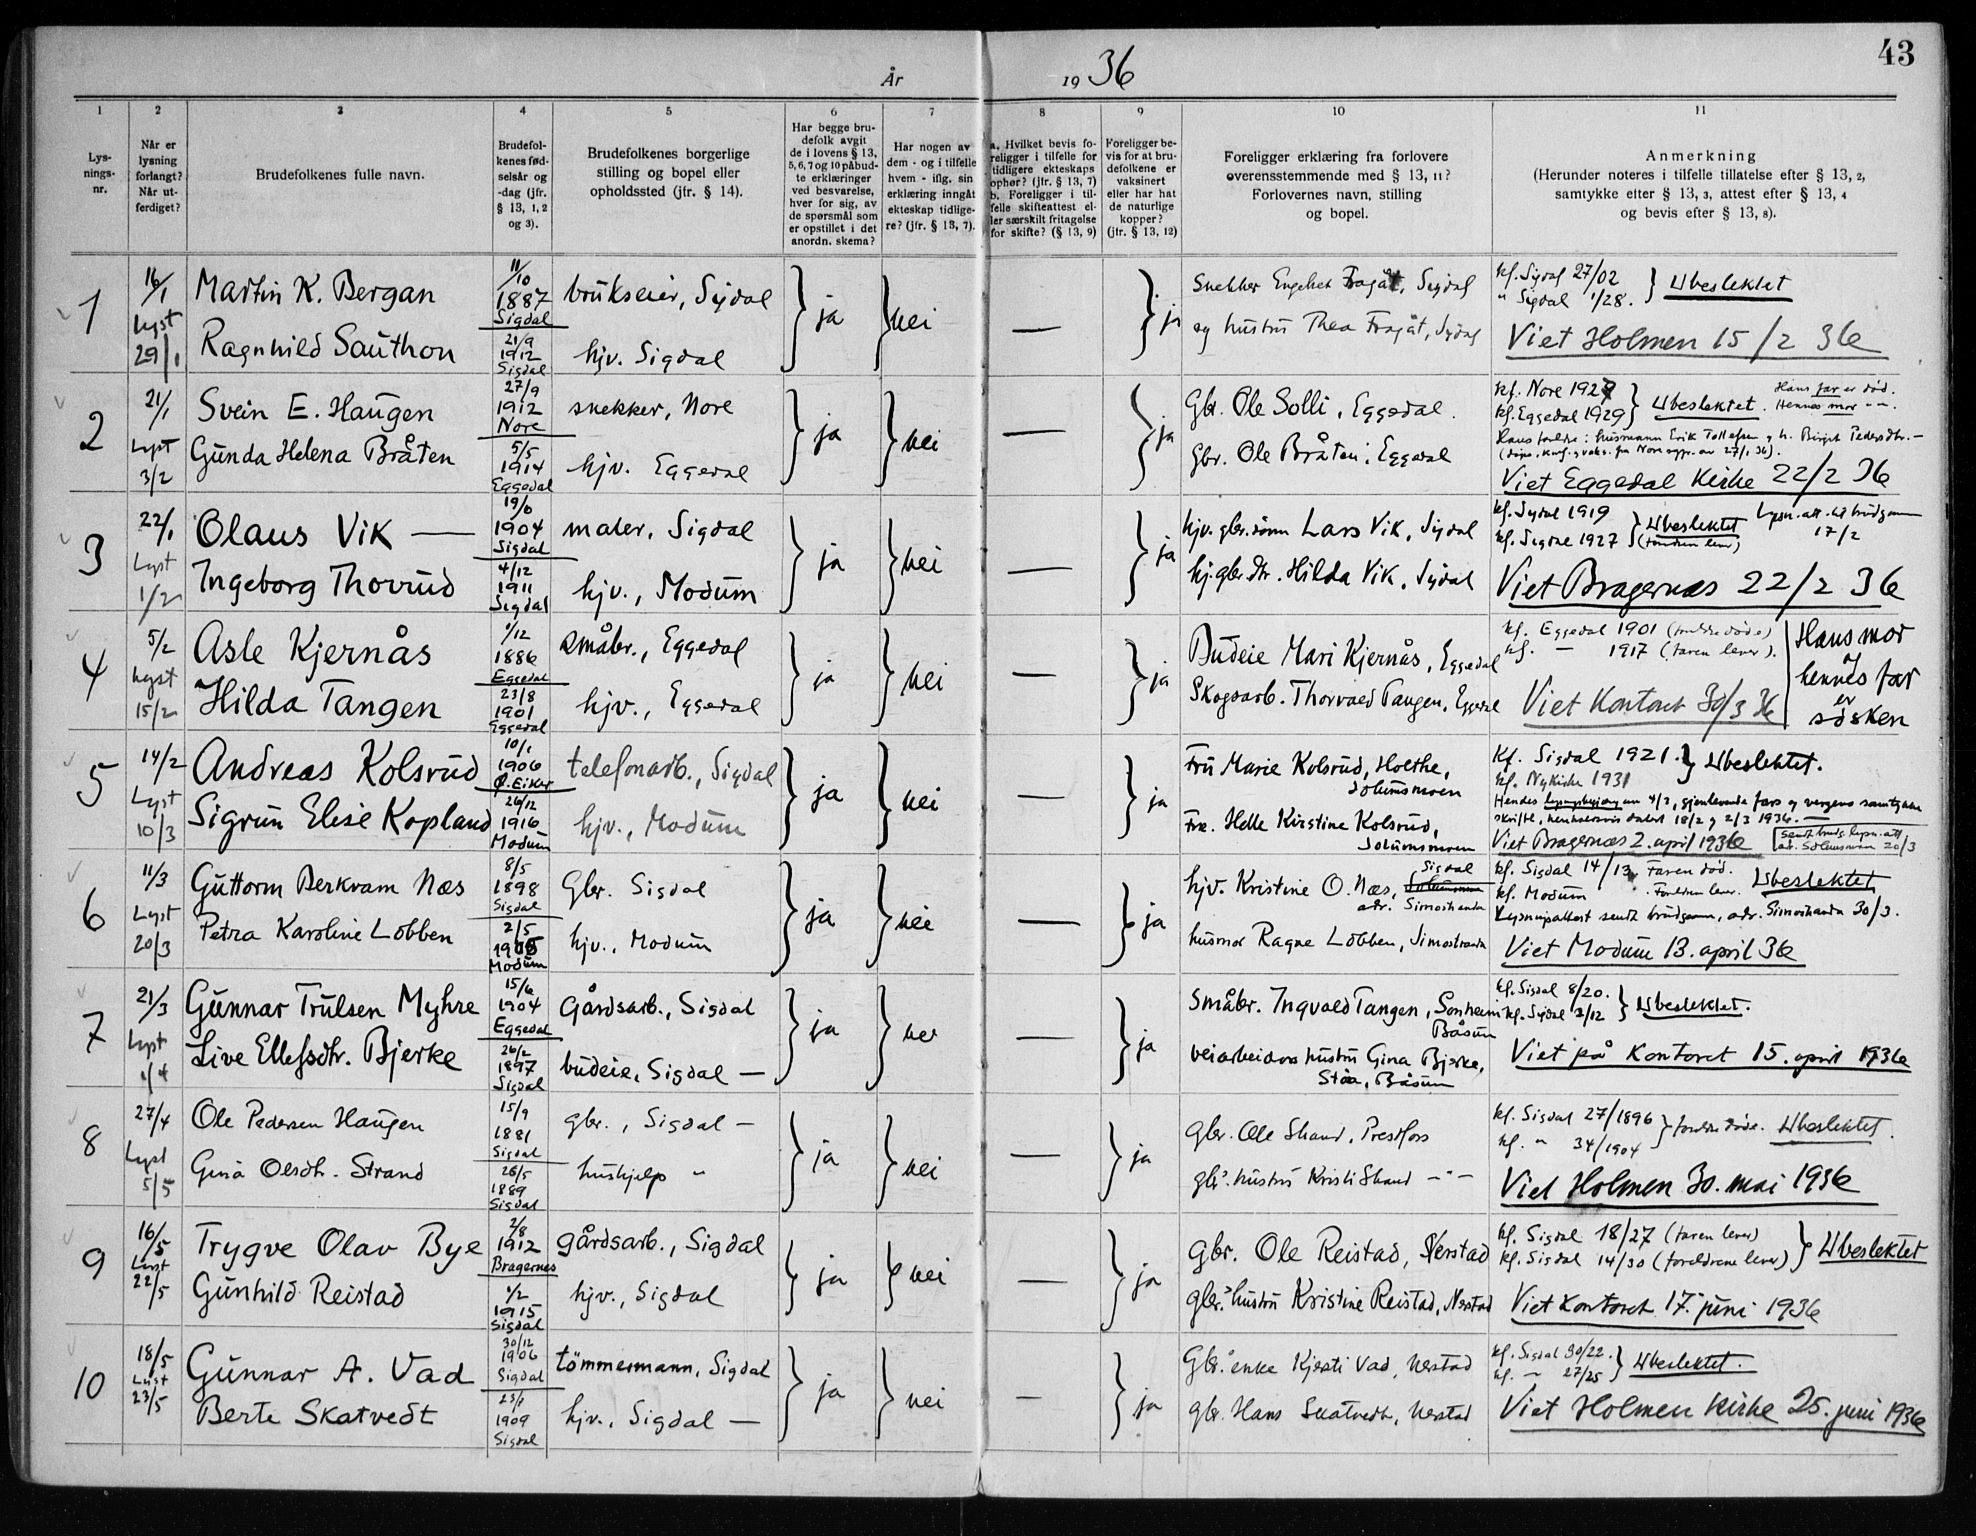 43
År 1936
1 2 3 4 5 6 7 8 9 10 11
Lys-
nings-
nr.
Når er
lysning
forlangt?
Når ut-
ferdiget?
Brudefolkenes fulle navn.
Brudefol-
kenes fød-
selsår og
-dag (jfr.
§ 13, 1, 2
og 3).
Brudefolkenes borgerlige
stilling og bopel eller
opholdssted (jfr. § 14).
Har begge bru-
defolk avgit
de i lovens § 13,
5, 6, 7 og 10 påbud-
te erklæringer
ved besvarelse,
hver for sig, av
de spørsmål som
er opstillet i det
anordn. skema?
Har nogen av
dem - og i tilfelle
hvem - iflg. sin
erklæring inngåt
ekteskap tidlige-
re? (jfr. § 13, 7).
a. Hvilket bevis fo-
religger i tilfelle for
tidligere ekteskaps
ophør? (jfr. § 13, 7)
b. Foreligger i til-
felle skifteattest el-
ler særskilt fritagelse
for skifte? (§ 13, 9)
Foreligger be-
vis for at bru-
defolkene er
vaksinert
eller har hat
de naturlige
kopper?
(jfr. § 13, 12)
Foreligger erklæring fra forlovere
overensstemmende med § 13, 11?
Forlovernes navn, stilling
og bopel.
Anmerkning
(Herunder noteres i tilfelle tillatelse efter § 13, 2,
samtykke efter § 13, 3, attest efter § 13, 4
og bevis efter § 13, 8).
1
16/1
Lyst
29/1
Martin K. Bergan
Ragnhild Sauthon
11/10
1887
Sigdal
21/9
1912
Sigdal
brukseier, Sigdal
hjv. Sigdal
ja
nei
—
ja
Snekker Engebret Fragåt, Sigdal
og hustru Thea Fragåt, Sigdal
kf. Sigdal 27/02
" Sigdal 1/28. Ubeslektet
Viet Holmen 15/2 36
2
21/1
Lyst
3/2
Svein E. Haugen
Gunda Helena Bråten
27/9
1912
Nore
5/5
1914
Eggedal
snekker, Nore
hjv. Eggedal
ja
nei
—
ja
Gbr. Ole Solli, Eggedal.
Gbr. Ole Bråten, Eggedal
kf. Nore 1927
kf. Eggedal 1929 Ubeslektet. Hans far er død.
Hennes mor - " -.
Hans foreldre: husmann Erik Tollefsen og h. Birgit Pedersdtr. —
Viet Eggedal Kirke 22/2 36
3
22/1
Lyst
1/2
Olaus Vik —
Ingeborg Thovrud
19/6
1904
Sigdal
4/12
1911
Sigdal
maler, Sigdal
hjv., Modum
ja
nei
—
ja
hjv. gbr.sønn Lars Vik, Sigdal
hj. gbr.dtr. Hilda Vik, Sigdal
kf. Sigdal 1919
kf. Sigdal 1927 Ubeslektet Lysn.att. til brudgom
17/2
Viet Bragernæs 22/2 36
4
5/2
Lyst
15/2
Asle Kjernås
Hilda Tangen
1/12
1886
Eggedal
23/8
1901
Eggedal
småbr., Eggedal
hjv., Eggedal
ja
nei
—
ja
Budeie Mari Kjernås, Eggedal
Skogsarb. Thorvald Tangen, Eggedal
kf. Eggedal 1901
kf. — 1917 (faren lever).
Hans mor
og
hennes far
er
søsken
Viet Kontoret 30/3 36
5
14/2
Lyst
10/3
Andreas Kolsrud
Sigrun Elise Kopland
10/1
1906
Ø. Eiker
26/12
1916
Modum
telefonarb., Sigdal
hjv., Modum
ja
nei
—
ja
Fru Marie Kolsrud, Holthe,
Solumsmoen
Frk. Helle Kirstine Kolsrud,
Solumsmoen
Kf. Sigdal 1921. Ubeslektet.
kf. Nykirke 1931
skriftl., henholdsvis datert 18/2 og 2/3 1936. —
Viet Bragernæs 2. april 1936
6
11/3
Lyst
20/3
Guttorm Berkvam Næs
Petra Karoline Lobben
8/5
1898
Sigdal
2/5
Modum
Gbr. Sigdal
hjv., Modum
ja
nei
—
ja
hjv. Kristine O. Næs, Sigdal
adr. Simostranda
husmor Ragne Lobben, Simostranda
kf. Sigdal 14/13. Faren død.
kf. Modum. Foreldre lever. Ubeslektet
Lysningsattest sendt brudgom, adr. Simostranda 30/3.
Viet Modum 13. april 36
7
21/3
Lyst
1/4
Gunnar Trulsen Myhre
Live Ellefsdtr. Bjerke
15/6
1904
Eggedal
26/2
1897
Sigdal
Gårdsarb., Sigdal
budeie, Sigdal —
ja
nei
—
ja
Småbr. Ingvald Tangen, Sonheim
Båsum
veiarbeiders hustru Gina Bjerke,
Støa, Båsum
kf. Sigdal 8/20.
kf. Sigdal 2/12 Ubeslektet.
Viet på Kontoret 15. april 1936
8
27/4
Lyst
5/5
Ole Pedersen Haugen
Gina Olsdtr. Strand
15/9
1881
Sigdal
26/5
1889
Sigdal
gbr., Sigdal —
hushjelp "
ja
nei
—
ja
Gbr. Ole Strand, Prestfoss
gbr.' hustru Kristi Strand — " —
kf. Sigdal 27/1896
kf. " 34/1904 foreldre døde. Ubeslektet.
Viet Holmen 30. mai 1936
9
16/5
Lyst
22/5
Trygve Olav Bye
Gunhild Reistad
2/8
1912
Bragernes
1/2
1915
Sigdal
gårdsarb., Sigdal
hjv., Sigdal
ja
nei
—
ja
Gbr. Ole Reistad, Nerstad
gbr.' hustru Kristine Reistad, Nerstad
kf. Sigdal 18/27 (faren lever)
kf. Sigdal 14/30 (foreldrene lever) Ubeslektet
Viet Kontoret 17. juni 1936
10
18/5
Lyst
23/5
Gunnar A. Vad
Berte Skatvedt
30/12
1906
Sigdal
23/1
1909
Sigdal
tömmermann, Sigdal
hjv., Sigdal —
ja
nei
—
ja
Gbr. enke Kjersti Vad, Nerstad
gbr. Hans Skatvedt, Nerstad
kf. Sigdal 30/22.
kf. — 27/25 Ubeslektet.
Viet Holmen Kirke 25. juni 1936